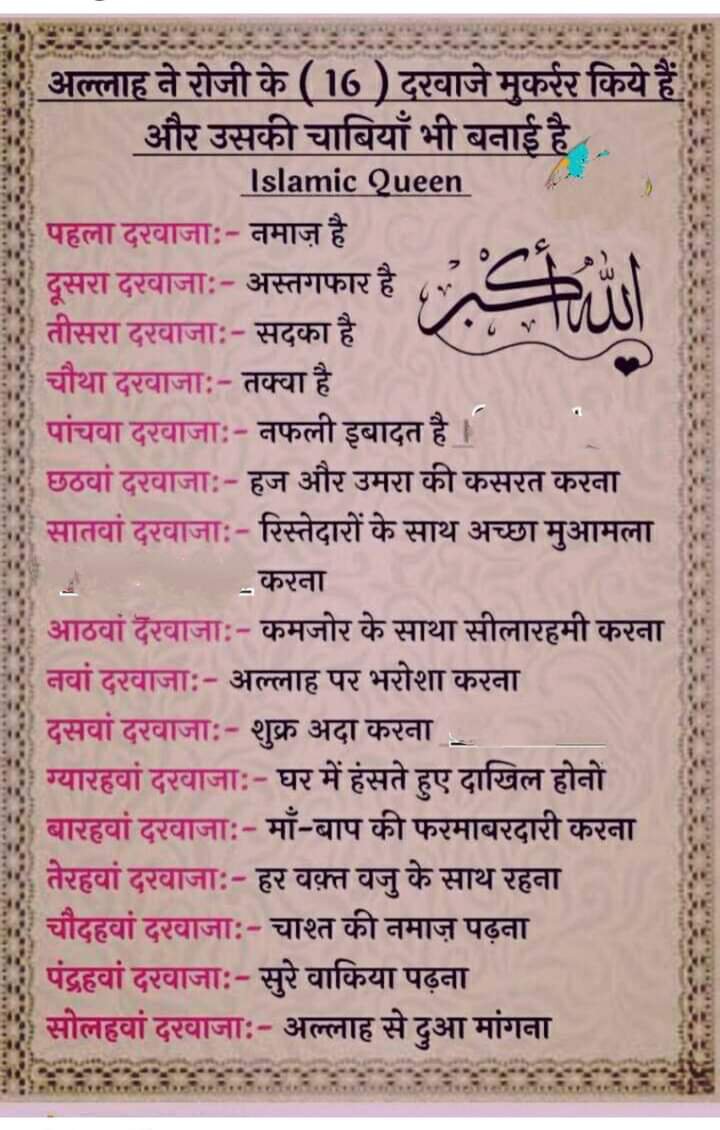 अल्लाह ने रोजी के ( 16 ) दरवाजे मुकर्रर किये हैं
और उसकी चाबियाँ भी बनाई है
Islamic Queen
पहला दरवाजा:- नमाज़ है
दूसरा दरवाजा:- अस्तगफार है
الله أكبر
तीसरा दरवाजा:- सदका है
चौथा दरवाजा:- तक्वा है
पांचवा दरवाजा:- नफली इबादत है
छठवां दरवाजा:- हज और उमरा की कसरत करना
सातवां दरवाजा:- रिस्तेदारों के साथ अच्छा मुआमला
करना
आठवां दरवाजा:- कमजोर के साथा सीलारहमी करना
नवां दरवाजा:- अल्लाह पर भरोशा करना
दसवां दरवाजा:- शुक्र अदा करना
ग्यारहवां दरवाजा:- घर में हंसते हुए दाखिल होनो
बारहवां दरवाजा:- माँ-बाप की फरमाबरदारी करना
तेरहवां दरवाजा:- हर वक़्त वजु के साथ रहना
चौदहवां दरवाजा:- चाश्त की नमाज़ पढ़ना
पंद्रहवां दरवाजा:- सुरे वाकिया पढ़ना
सोलहवां दरवाजा:- अल्लाह से दुआ मांगना